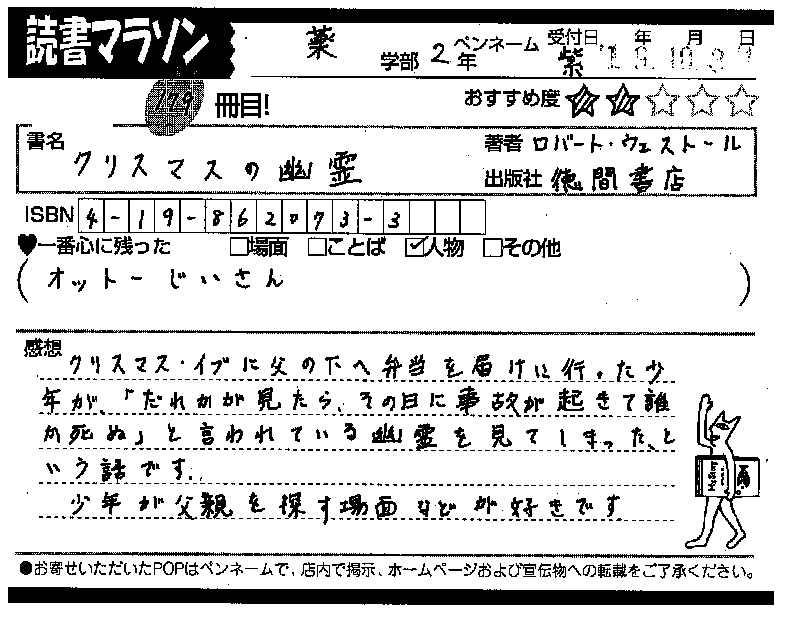 読書マラソン
薬 学部 2年 ペンネーム 紫 受付日 年 月 日
179 冊目! おすすめ度 ★★☆☆☆
書名 クリスマスの幽霊 著者 ロバート・ウェストール
出版社 徳間書店
ISBN 4-19-862073-3
♥一番心に残った □場面 □ことば ☑人物 □その他
(オットーじいさん)
感想
クリスマス・イブに父の下へ弁当を届けに行った少
年が、「だれかが見たら、その日に事故が起きて誰
か死ぬ」と言われている幽霊を見てしまった、と
いう話です。
少年が父親を探す場面などが好きです
●お寄せいただいたPOPはペンネームで、店内で掲示、ホームページおよび宣伝物への転載をご了承ください。